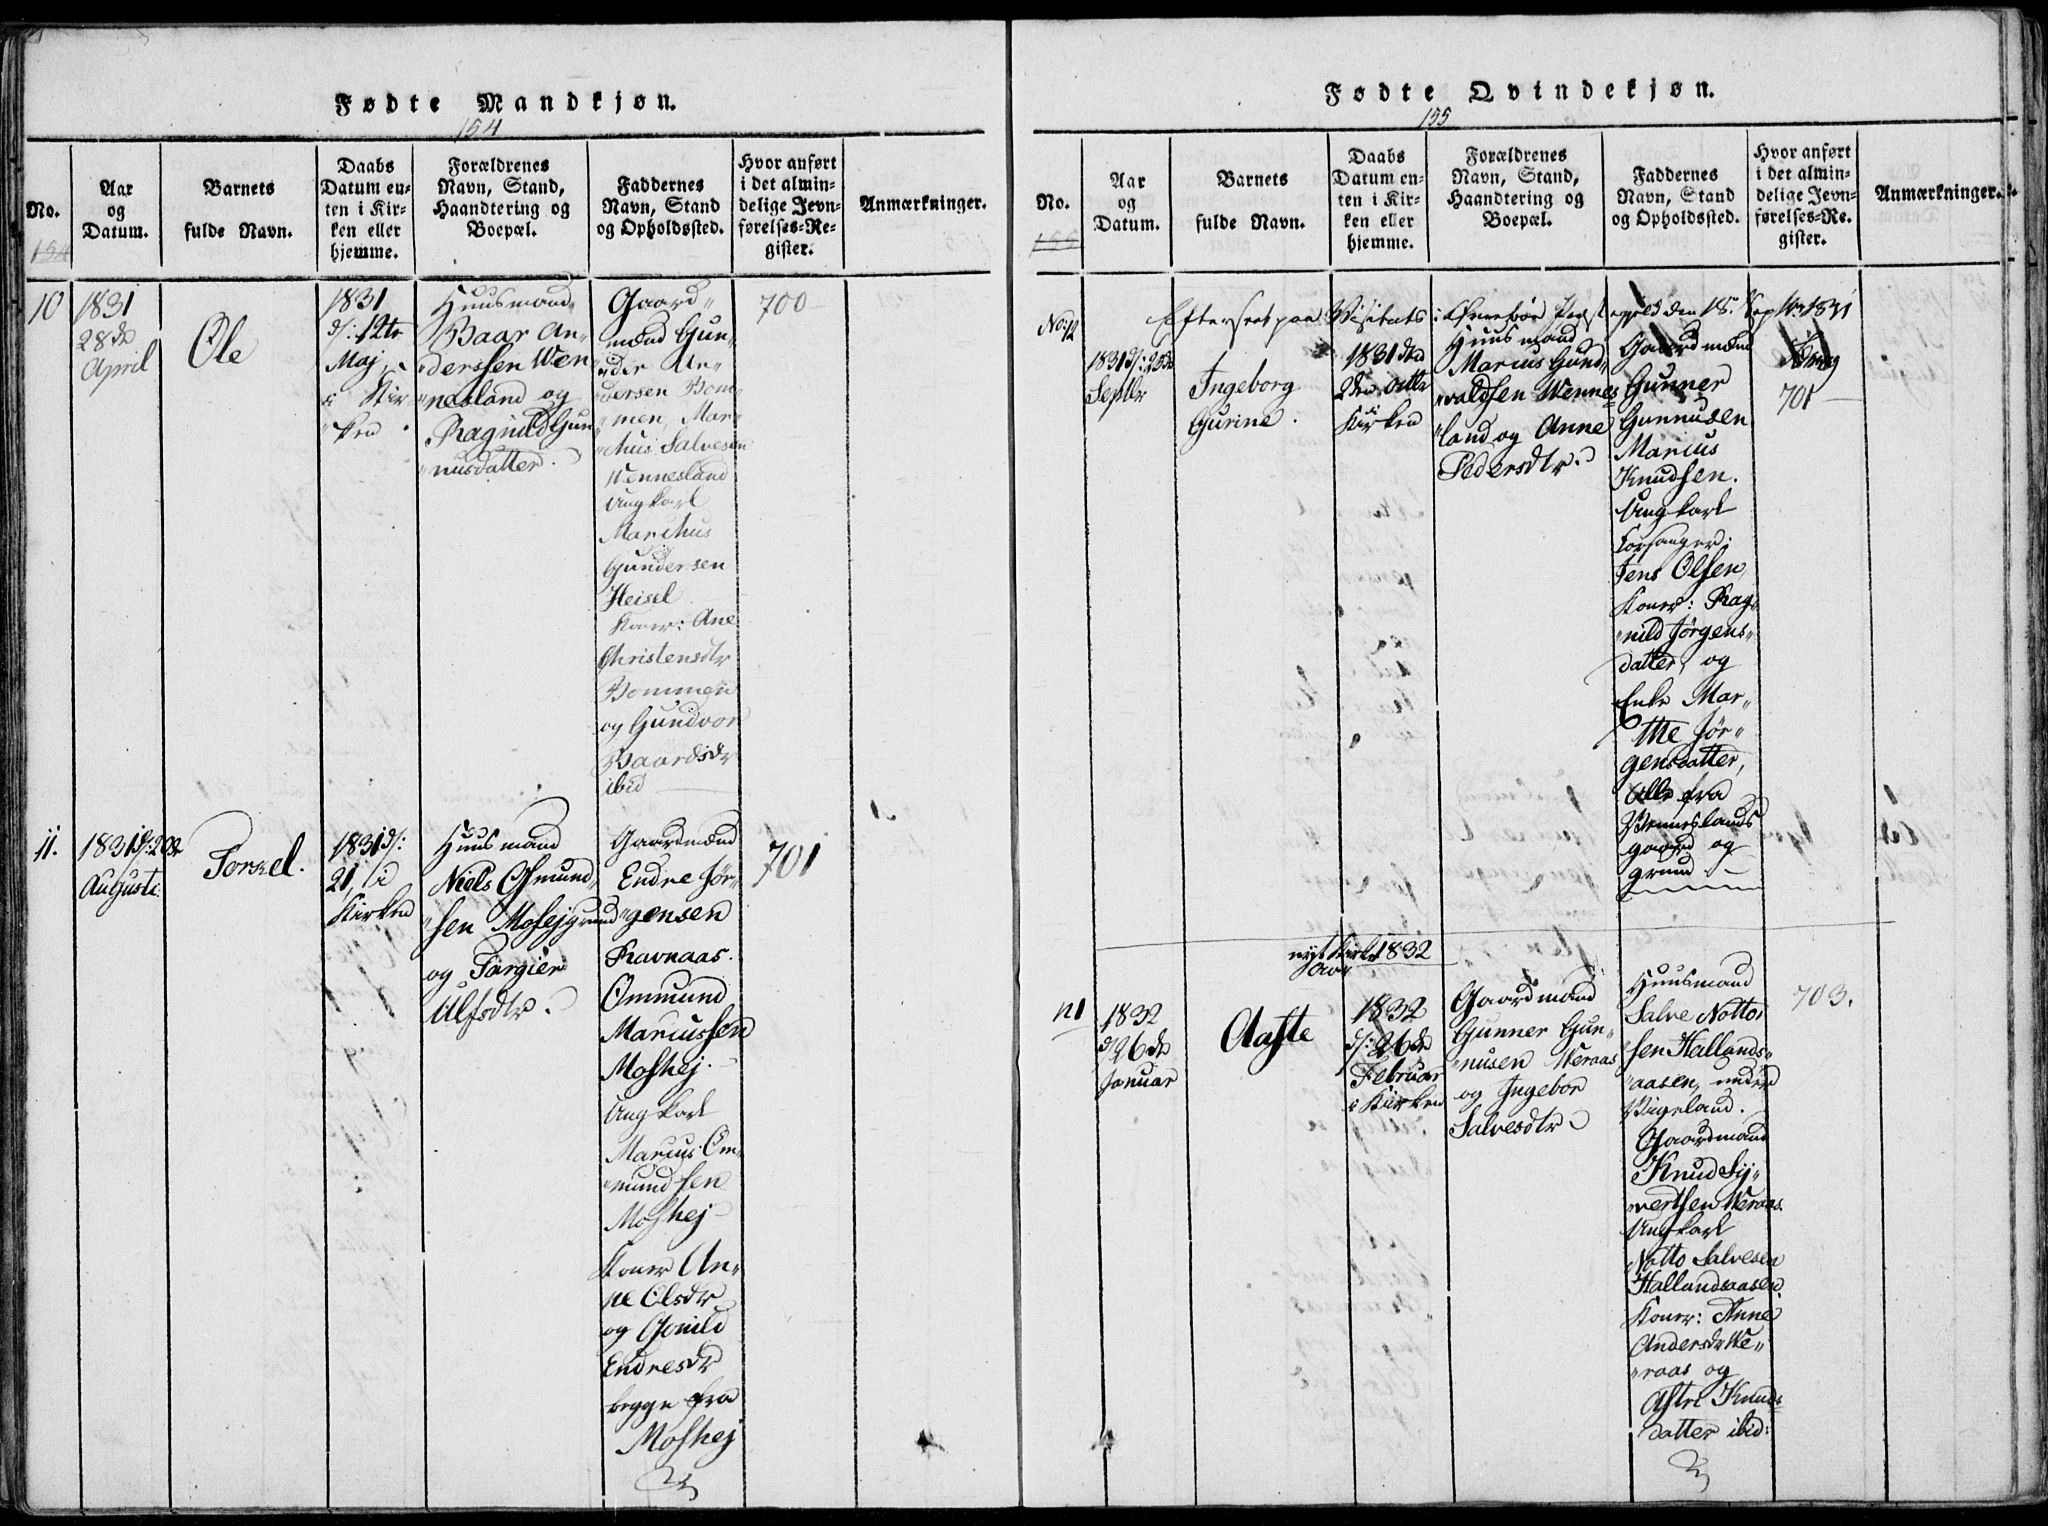 Fødte Mandkjøn.
154
No.
154
Aar
og
Datum.
Barnets
fulde Navn.
Daabs
Datum en-
ten i Kir-
ken eller
hjemme.
Forældrenes
Navn, Stand,
Haandtering og
Boepæl.
Faddernes
Navn, Stand
og Opholdssted.
Hvor anført
i det almin-
delige Jevn-
førelses-Re-
gister.
Anmærkninger.
10
1831
28de
April
Ole
1831
d: 12te
Maj
i Kir
"ken
Huusmand
Baar An-
"derssen Wen
"nesland og
Ragnild Gun
"nusdatter.
Gaard"
mænd Gun"
"der An"
"dersen Bom"
"men, Mar"
"thus Salvesen
Wennesland
Ungkarl
Marthus
Gundersen
Heisel
Koner: Ane
Christensdtr
Bommen
og Gundvor
Baardsdr
ibid
700
11.
1831 d: 20de
Augusti
Torkel.
1831 d:
21, i
Kirken
Huusmand
Niels Osmund"
"sen Mosejgrund
og Targier
Ulfsdtr.
Gaardmænd
Endre Jør"
"gensen
Ravnaas.
Ommund
Mariussen
Moshej.
Ungkarl
Marius Om"
"mundsen
Moshej
Koner An"
ne Olsdtr
og Gonild
Endresdtr
begge fra
Moshej
701
Fødte Qvindekjøn.
155
No.
155
Aar
og
Datum.
Barnets
fulde Navn.
Daabs
Datum en-
ten i Kir-
ken eller
hjemme.
Forældrenes
Navn, Stand,
Haandtering og
Boepæl.
Faddernes
Navn, Stand
og Opholdssted.
Hvor anført
i det almin-
delige Jevn-
førelses-Re-
gister.
Anmærkninger.
Efterseet paa Visitats i den 18. Sept 1831
No: 12
1831 d: 23de
Septbr
Ingeborg
Gurine.
1831 den
2den Octbr
Kirken
Huusmand
Marius Gund"
"valdsen Wennes
"land og Anne
Pedersdtr.
Gaardmænd
Gunner
Gunnusen
Marius
Knudsen.
Ungkarl
Forsanger:
Jens Olsen,
Koner: Rag"
"nild Jørgens"
datter, og
Enke Mar"
the Jør"
gensdatter,
Alle fra
Venneslands
gaard og
grund.
701
nyt Kirke 1832
Aar
n1
1832
d 26de
Januar
Aaste
1832
d: 26de
Februar
i Kirken
Gaardmand
Gunner Gun"
"nusen Keraas
og Ingebor
Salvesdtr.
Huusmand
Salve Notto"
"sen Hallands"
"aasen, under
Vigeland.
Gaardmand
Knud Sy"
"vertsen Keraas
Ungkarl
Notto Salvesen
Hallandsaasen
Koner: Anne
Andersdr Ke"
"raas og
Astri Knuds
datter ibid:
703.